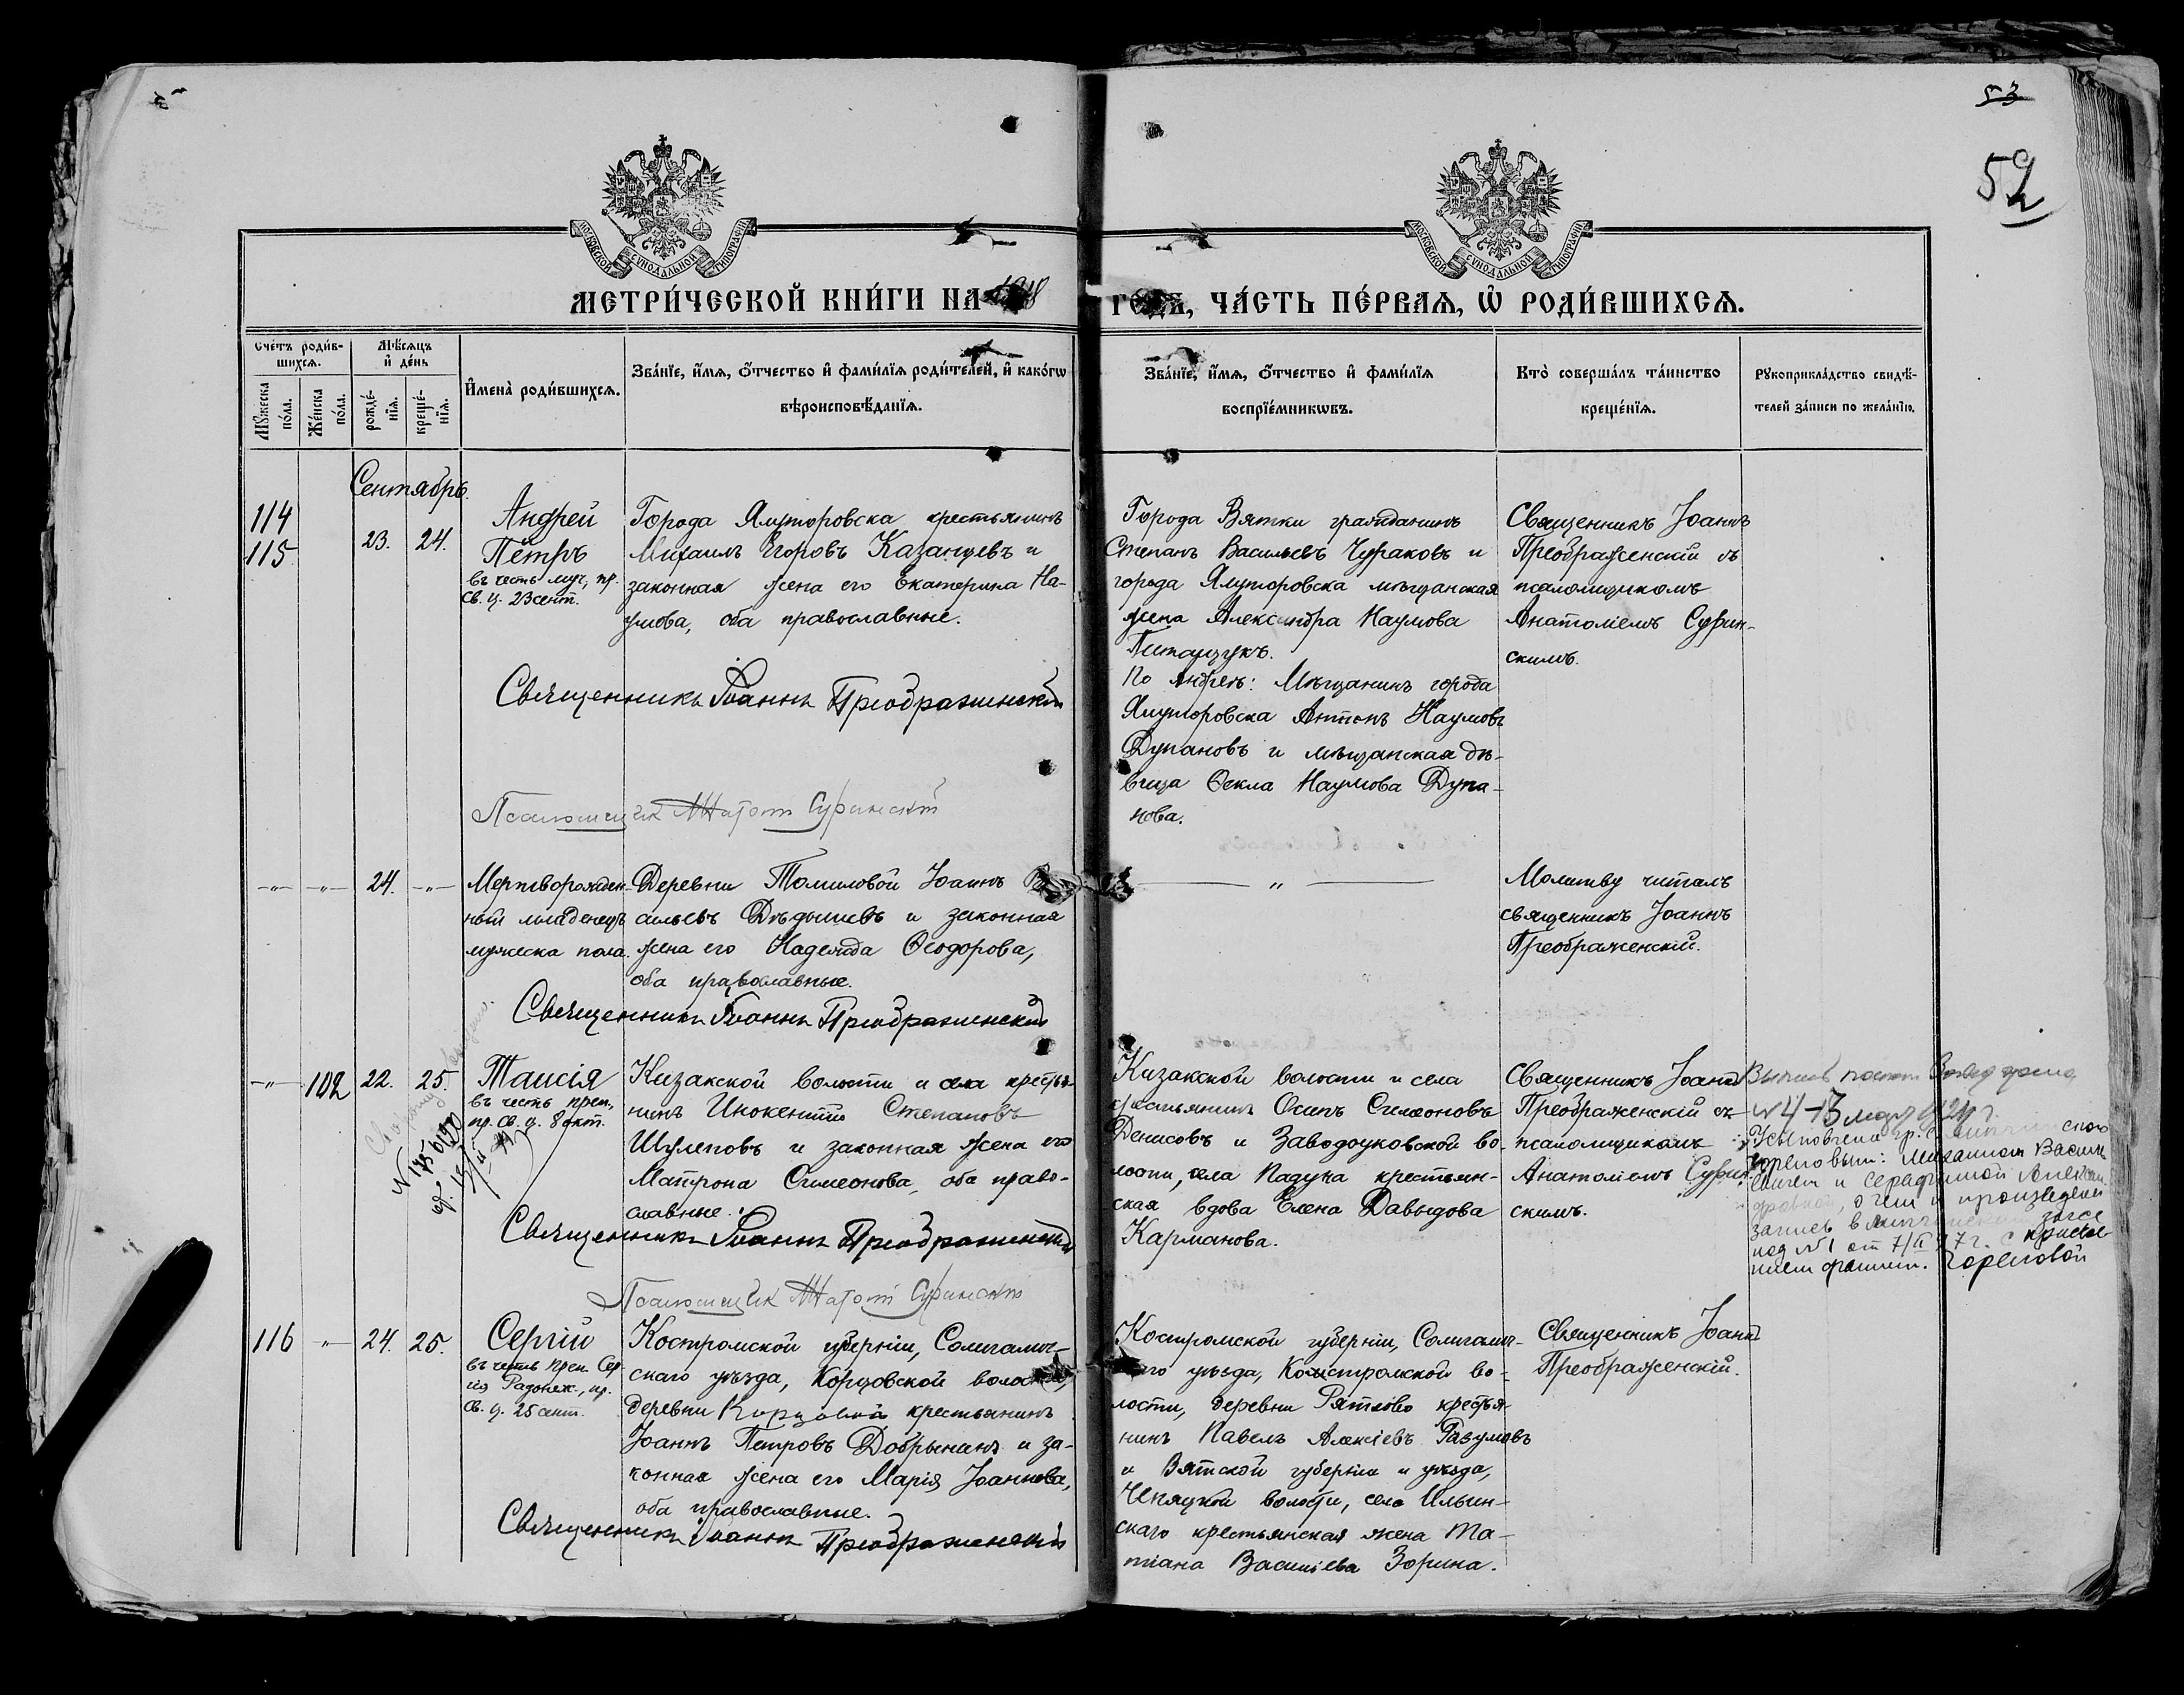 53
52
МОСКОВСКОЙ СУНОДАЛЬНОЙ ТИПОГРАФІИ
МОСКОВСКОЙ СУНОДАЛЬНОЙ ТИПОГРАФІИ
МЕТРИ́ЧЕСКОЙ КНИ́ГИ НА
ГОДЪ, ЧА́СТЬ ПЕ́РВАЯ, Ѡ҆ РОДИ́ВШИХСЯ.
Сче́тъ роди́в-
шихся.
Мѣ́сяцъ
и҆ де́нь
Мꙋ́жеска
по́ла.
Же́нска
по́ла.
рожде́-
нїя.
креще́-
нїя.
И҆мена̀ роди́вшихся.
Зва́нїе, и҆́мя, ѻ҆́тчество и҆ фами́лїя роди́телей, и҆ како́гѡ
вѣроисповѣ́данїя.
Зва́нїе, и҆́мя, ѻ҆́тчество и҆ фами́лїя
воспрїе́мникѡвъ.
Кто̀ соверша́лъ та́инство
креще́нїя.
Рꙋкоприкла́дство свидѣ́-
телей за́писи по жела́нїю.
Сентябрь.
114
115
23.
24.
Андрей
Петръ
въ честь муч., пр.
Св. ц. 23 сент.
Города Ялуторовска крестьянинъ
Михаилъ Егоровъ Казанцевъ и
законная жена его Екатерина На-
умова, оба православные.
Священникъ Іоаннъ Преображенскій
Псаломщик Анатолій Суринскій
Города Вятки гражданинъ
Степанъ Васильевъ Чураковъ и
города Ялуторовска мѣщанская
жена Александра Наумова
По Андреѣ: Мѣщанинъ города
Ялуторовска Антонъ Наумовъ
Дупановъ и мѣщанская дѣ-
вица Ѳекла Наумова Дупа-
нова.
Священникъ Іоаннъ
Преображенскій съ
псаломщикомъ
Анатоліемъ Сурин-
скимъ.
-"-
-"-
24.
-"-
Мертворожден-
ный младенецъ
мужеска пола.
Деревни Томиловой Іоаннъ В
асильевъ Дѣдышевъ и законная
жена его Надежда Ѳеодорова,
оба православные.
Священникъ Іоаннъ Преображенскій
"
Молитву читалъ
священникъ Іоаннъ
Преображенскій.
-"-
102
22.
25.
Таисія
въ честь преп.,
пр. Св. ц. 8 окт.
Кизакской волости и села крестья-
нинъ Инокентій Степановъ
Шулеповъ и законная жена его
Матрона Симеонова, оба право-
славные.
Священникъ Іоаннъ Преображенскій
Псаломщик Анатолій Суринскій
Кизакской волости и села
крестьянинъ Осипъ Симеоновъ
Денисовъ и Заводоуковской во-
лости, села Падуна крестьян-
ская вдова Елена Давыдова
Карманова.
Священникъ Іоаннъ
Преображенскій съ
псаломщикомъ
Анатоліемъ Сурин-
скимъ.
Усыновлена гр.
Гореловым: Михаилом Василь
евичем и Серафимой Алексан
дровной, о чем и произведена
запись в
под №1 от 7/II 27 г. с присвое
нием фамил. Гореловой
116
-"-
24.
25.
Сергій
въ честь преп. Сер-
гія Радонеж., пр.
Св. ц. 25 сент.
Костромской губерніи, Солигалич-
скаго уѣзда, Корцовской волости,
деревни Корцовой крестьянинъ
Іоаннъ Петровъ Добрынинъ и за-
конная жена его Марія Іоаннова,
оба православные.
Священникъ Іоаннъ Преображенскій
Костромской губерніи, Солигалич-
скаго уѣзда, Костромской во-
лости, деревни крестья-
нинъ Павелъ Алексіевъ Разумовъ
и Вятской губерніи и уѣзда,
Чепецкой волости, села Ильин-
скаго крестьянская жена Та-
тіана Василіева Зорина.
Священникъ Іоаннъ
Преображенскій.